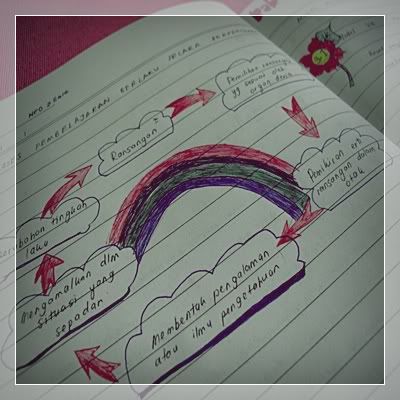 PEMBELAJARAN BERLAKU SECARA
Rangsangan
Pemilihan rangsangan
yg sesuai oleh
organ deria
Pemikiran
rangsangan dalam
otak
Membentuk pengalaman
atau ilmu pengetahuan
Mengamalkan dlm
situasi yang
sepadan
tingkah
laku